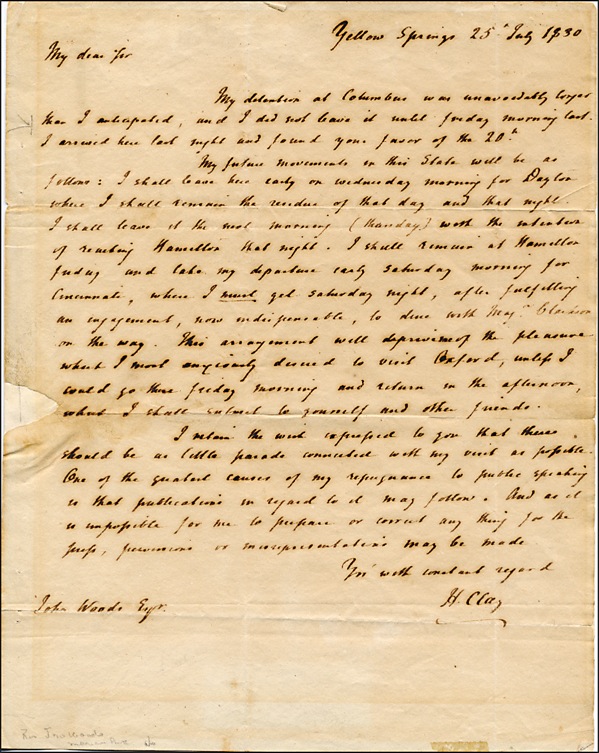 Yellow Springs 25h July 1830
My dear Sir
My detention at Columbus was unavoidably longer
than I anticipated, and I did not leave it until friday morning last.
I arrived here last night and found your favor of the 20h
My future movements in this State will be as
follows: I shall leave here early on wednesday morning for Dayton
where I shall remain the residue of that day and that night.
I shall leave it the next morning (thursday) with the intention
of reaching Hamilton that night. I shall remain at Hamilton
friday and take my departure early saturday morning for
Cincinnati, where I must get saturday night, after fulfilling
an engagement, now indispensable, to dine with Majr.
on the way. This arrangement will deprive me of the pleasure
which I most anxiously desired to visit Oxford, unless I
could go there friday morning and return in the afternoon,
what I shall submit to yourself and other friends.
I retain the wish expressed to you that there
should be as little parade connected with my visit as possible.
One of the greatest causes of my repugnance to public speaking
is that publications in regard to it may follow. And as it
is impossible for me to prepare or correct any thing for the
press, perversions or misrepresentations may be made
Yrs with constant regard
H. Clay
John Woods Esqr.